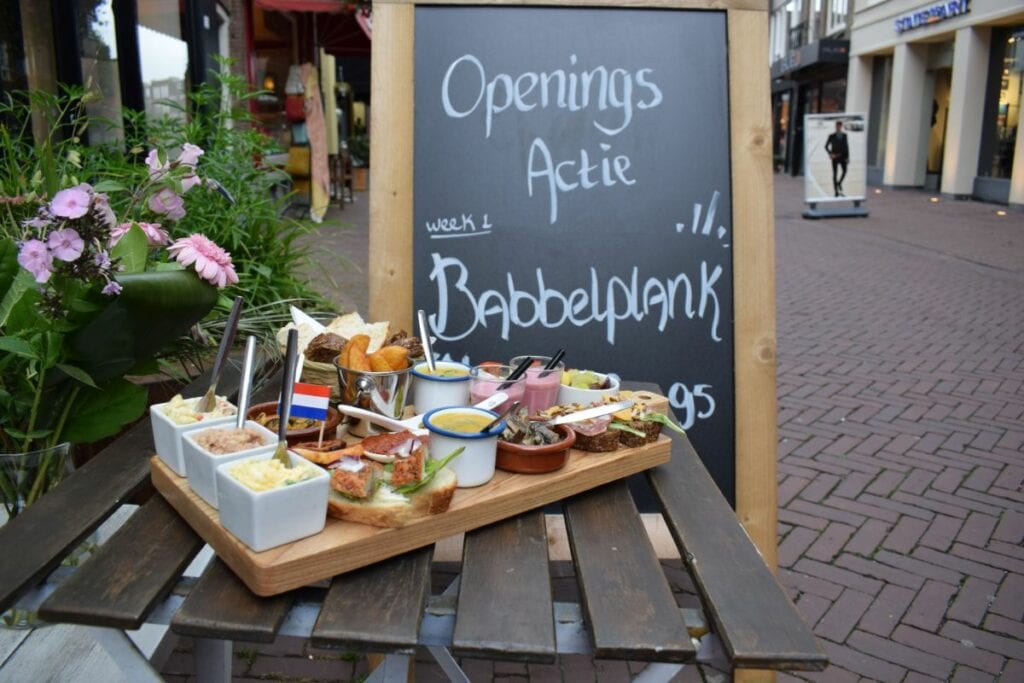 Openings
Actie
week 1
Babbelplank
95